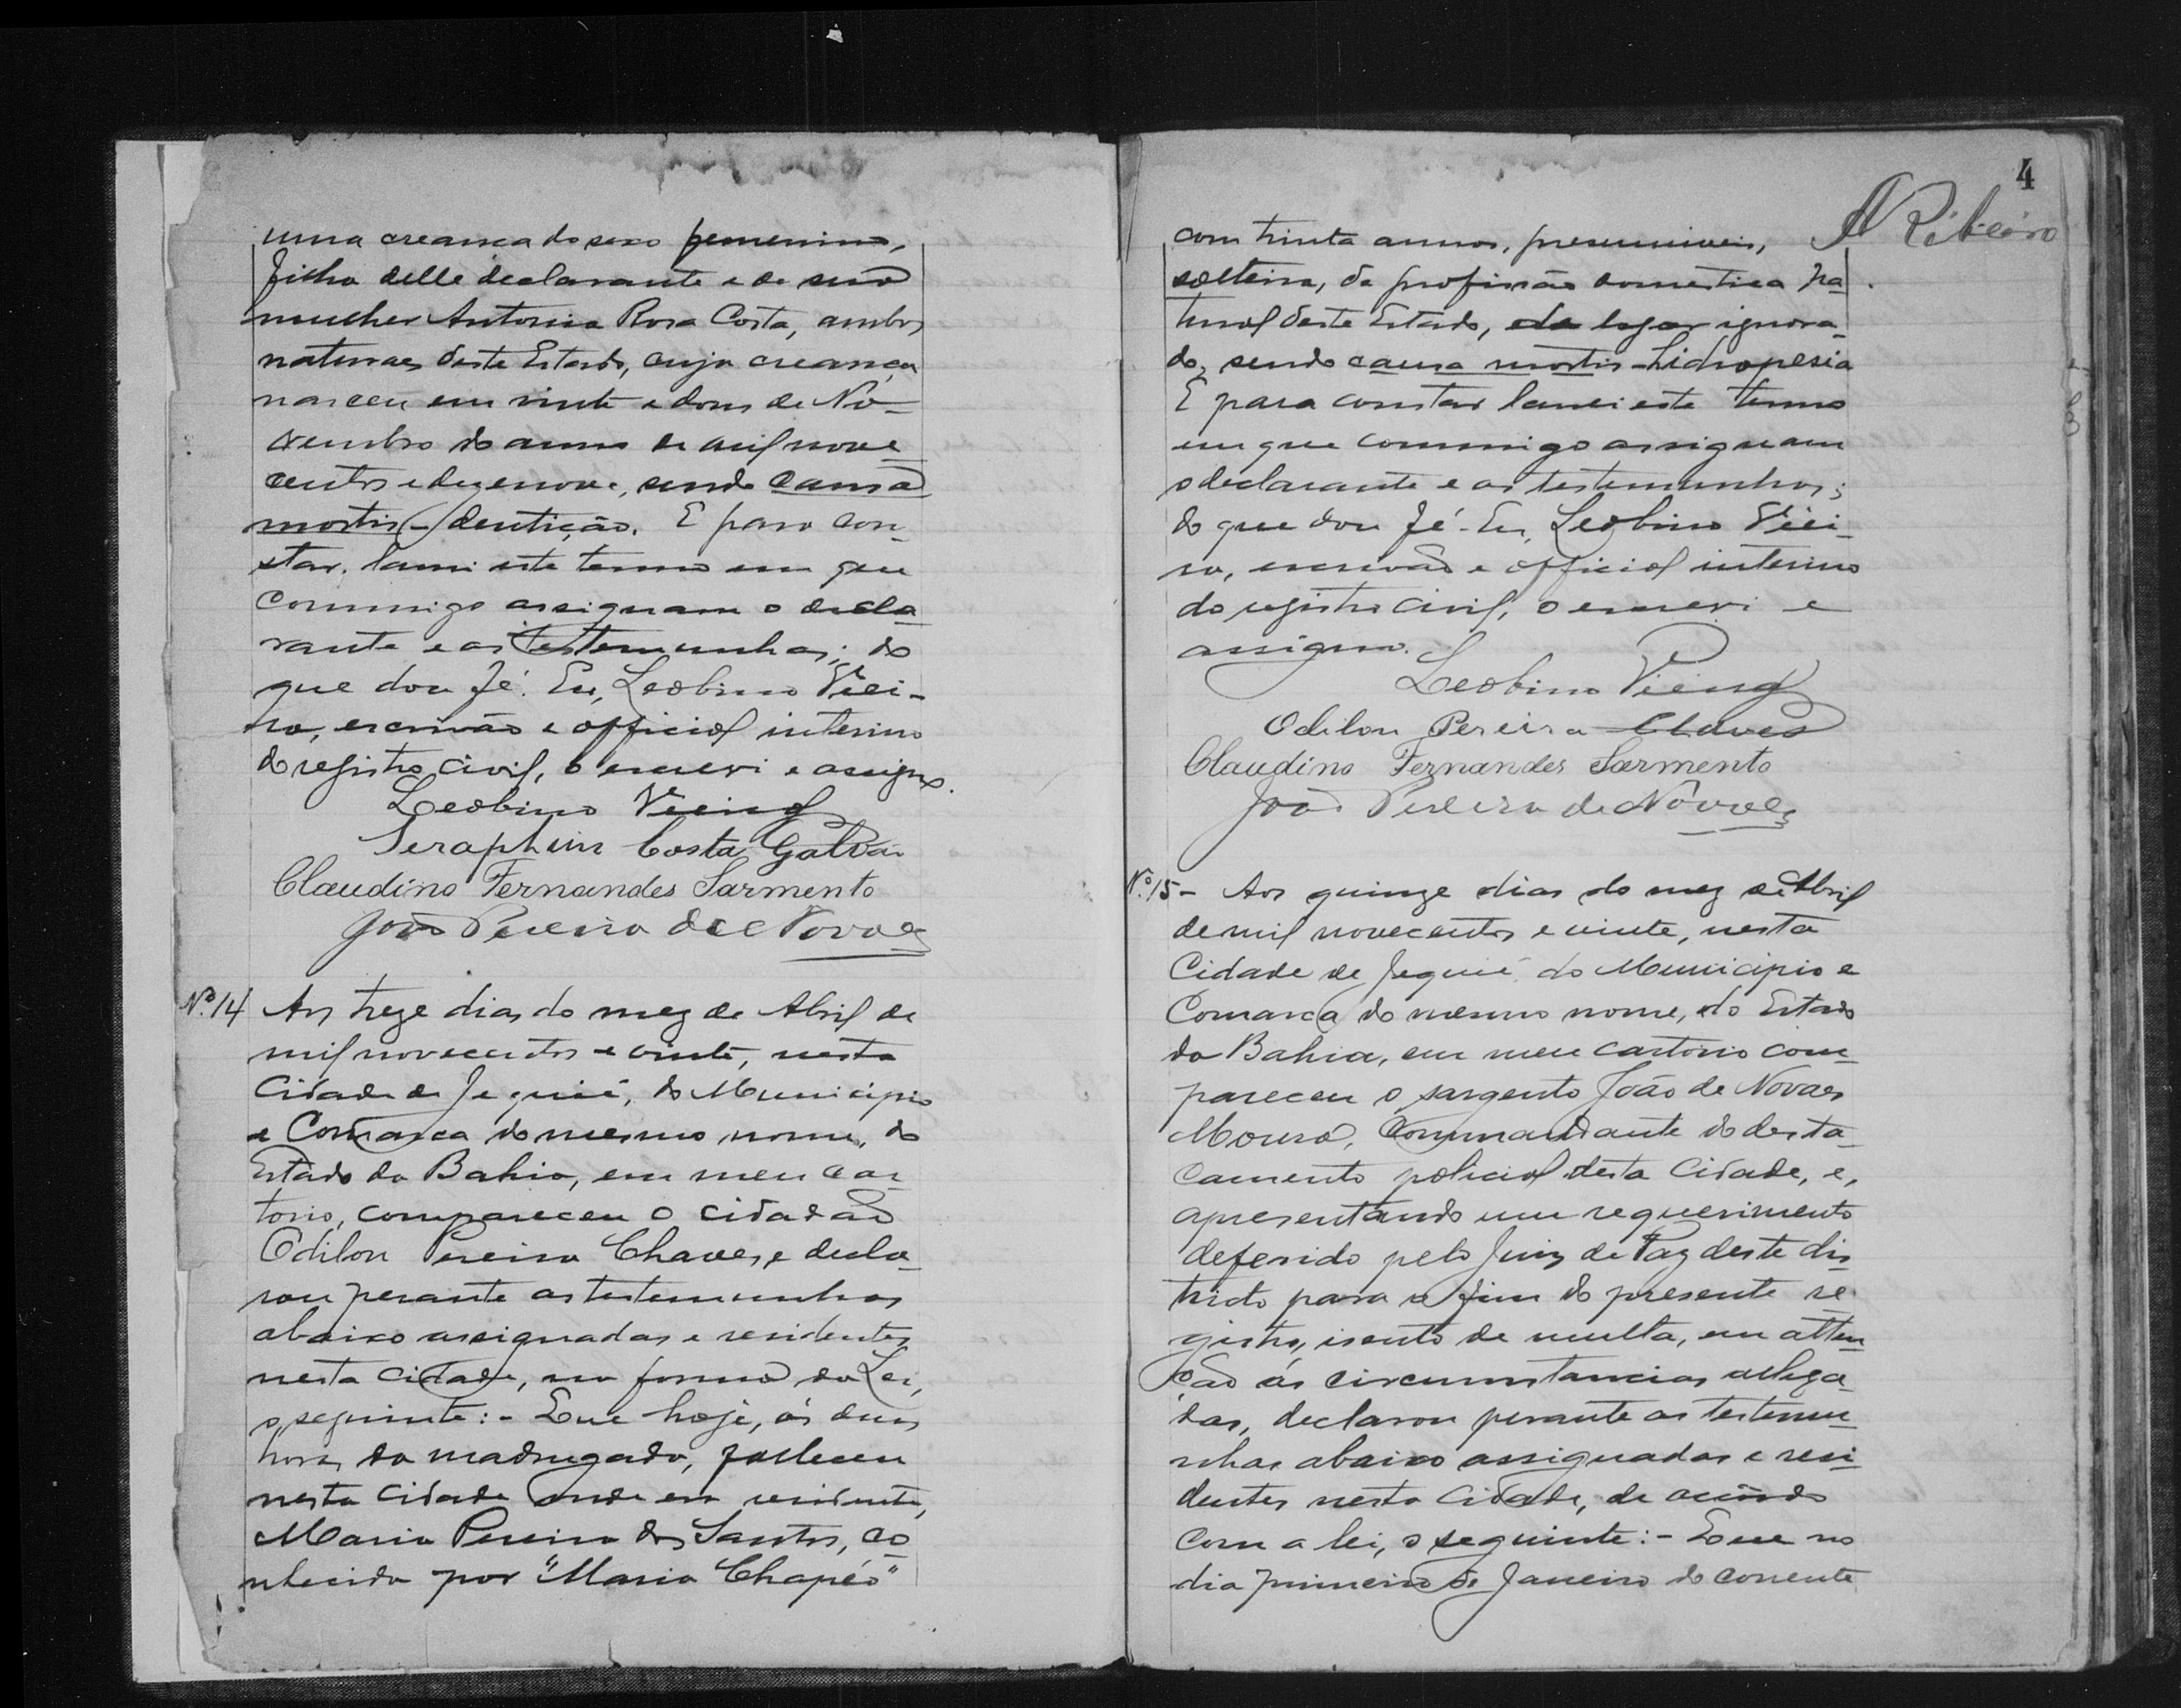 uma creança do sexo femenino,
filha delle declarante e de sua
mulher Antonia Rosa Costa, ambos
naturaes deste Estado, cuja creança
nasceu em vinte e dous de No-
vembro do anno de mil nove
centos e dezenove, sendo causa
mortis - dentição. E para con-
star, lancei este termo em que
commigo assignam o decla-
rante e as testemunhas; do
que dou fé. Eu, Leobino Viei-
ra, escrivão e official interino
do registro civil, o escrevi e assigno.
Leobino Vieira
Seraphim Costa Galvão
Claudino Fernandes Sarmento
João Pereira de Novaes
Nº 14 Aos treze dias do mez de Abril de
mil novecentos e vinte, nesta
Cidade de Jequié, do Municipio
e Comarca do mesmo nome, do
Estado da Bahia, em meu car-
torio, compareceu o cidadão
Odilon Pereira Chaves, e decla-
rou perante as testemunhas
abaixo assignadas e residentes
nesta cidade, na forma da Lei,
o seguinte: - Que hoje, ás duas
horas da madrugada, falleceu
nesta Cidade onde era residente,
Maria Pereira dos Santos, co-
nhecida por "Maria Chapéo"
4
A Ribeiro
com trinta annos, presumiveis,
solteira, de profissão domestica na-
tural deste Estado, de logar ignora-
do, sendo causa mortis - hidropesia
E para constar lancei este termo
em que commigo assignam
o declarante e as testemunhas;
do que dou fé. Eu, Leobino Viei-
ra, escrivão e official interino
do registro civil, o escrevi e
assigno.
Leobino Vieira
Odilon Pereira Chaves
Claudino Fernandes Sarmento
João Pereira de Novaes
Nº 15 - Aos quinze dias do mez de Abril
de mil novecentos e vinte, nesta
Cidade de Jequié, do Municipio e
Comarca do mesmo nome, do Estado
da Bahia, em meu cartorio com-
pareceu o sargento João de Novaes
Moura, Commandante do desta-
camento policial desta Cidade, e,
apresentando um requerimento
deferido pelo Juiz de Paz deste dis
tricto para o fim do presente re-
gistro, isento de multa, em atten-
ção ás circumstancias allega-
das, declarou perante as testemu-
nhas abaixo assignadas e resi-
dentes nesta Cidade, de accôrdo
com a lei, o seguinte: - Que no
dia primeiro de Janeiro do corrente